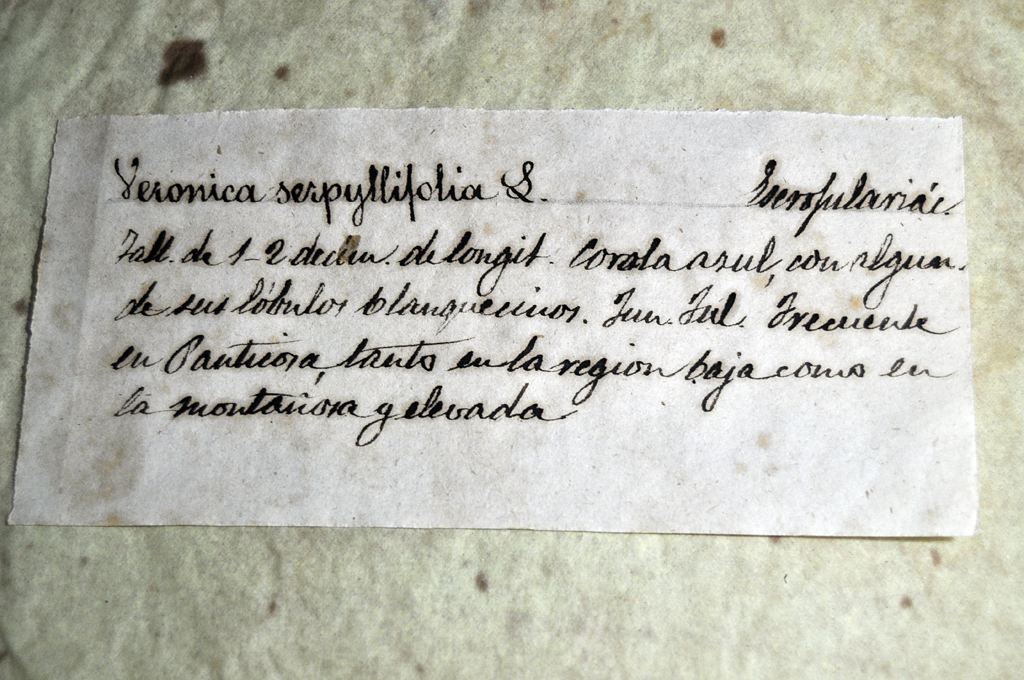 Veronica serpyllifolia L. Escrofulariác.
Tall. de 1-2 decím. de longit. Corola azul, con algun.
de sus lóbulos blanquecinos. Jun. Jul. Frecuente
en Panticosa, tanto en la region baja como en
la montañosa y elevada